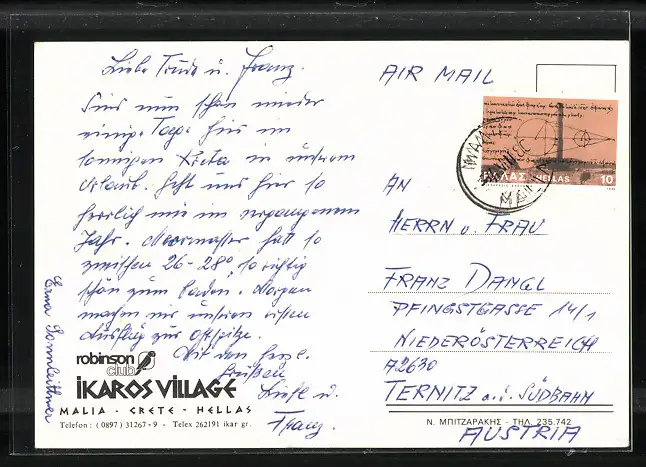 Liebe Trude u. Franz.
Sind nun schon wieder
einige Tage hier im
sonnigen Kreta in unserem
Urlaub. Geht uns hier so
herrlich wie im vergangenem
Jahr. Meerwasser hat so
zwischen 26-28° so richtig
schön zum baden. Morgen
machen wir unseren ersten
Ausflug zur Ostspitze.
Mit den herzl.
Grüßen
u.
Franz.
Erna Sonnleithner
robinson
club
iKAROS ViLLAGE
MALIA - CRETE - HELLAS
Telefon : ( 0897 ) 31267 - 9 - Telex 262191 ikar gr.
AIR MAIL
ΕΛΛΑΣ HELLAS 10
AN
HERRN u. FRAU
FRANZ DANGL
PFINGSTGASSE 14/1
NIEDERÖSTERREICH
A2630
TERNITZ a.d. SÜDBAHN
Ν. ΜΠΙΤΖΑΡΑΚΗΣ - ΤΗΛ. 235.742
AUSTRIA